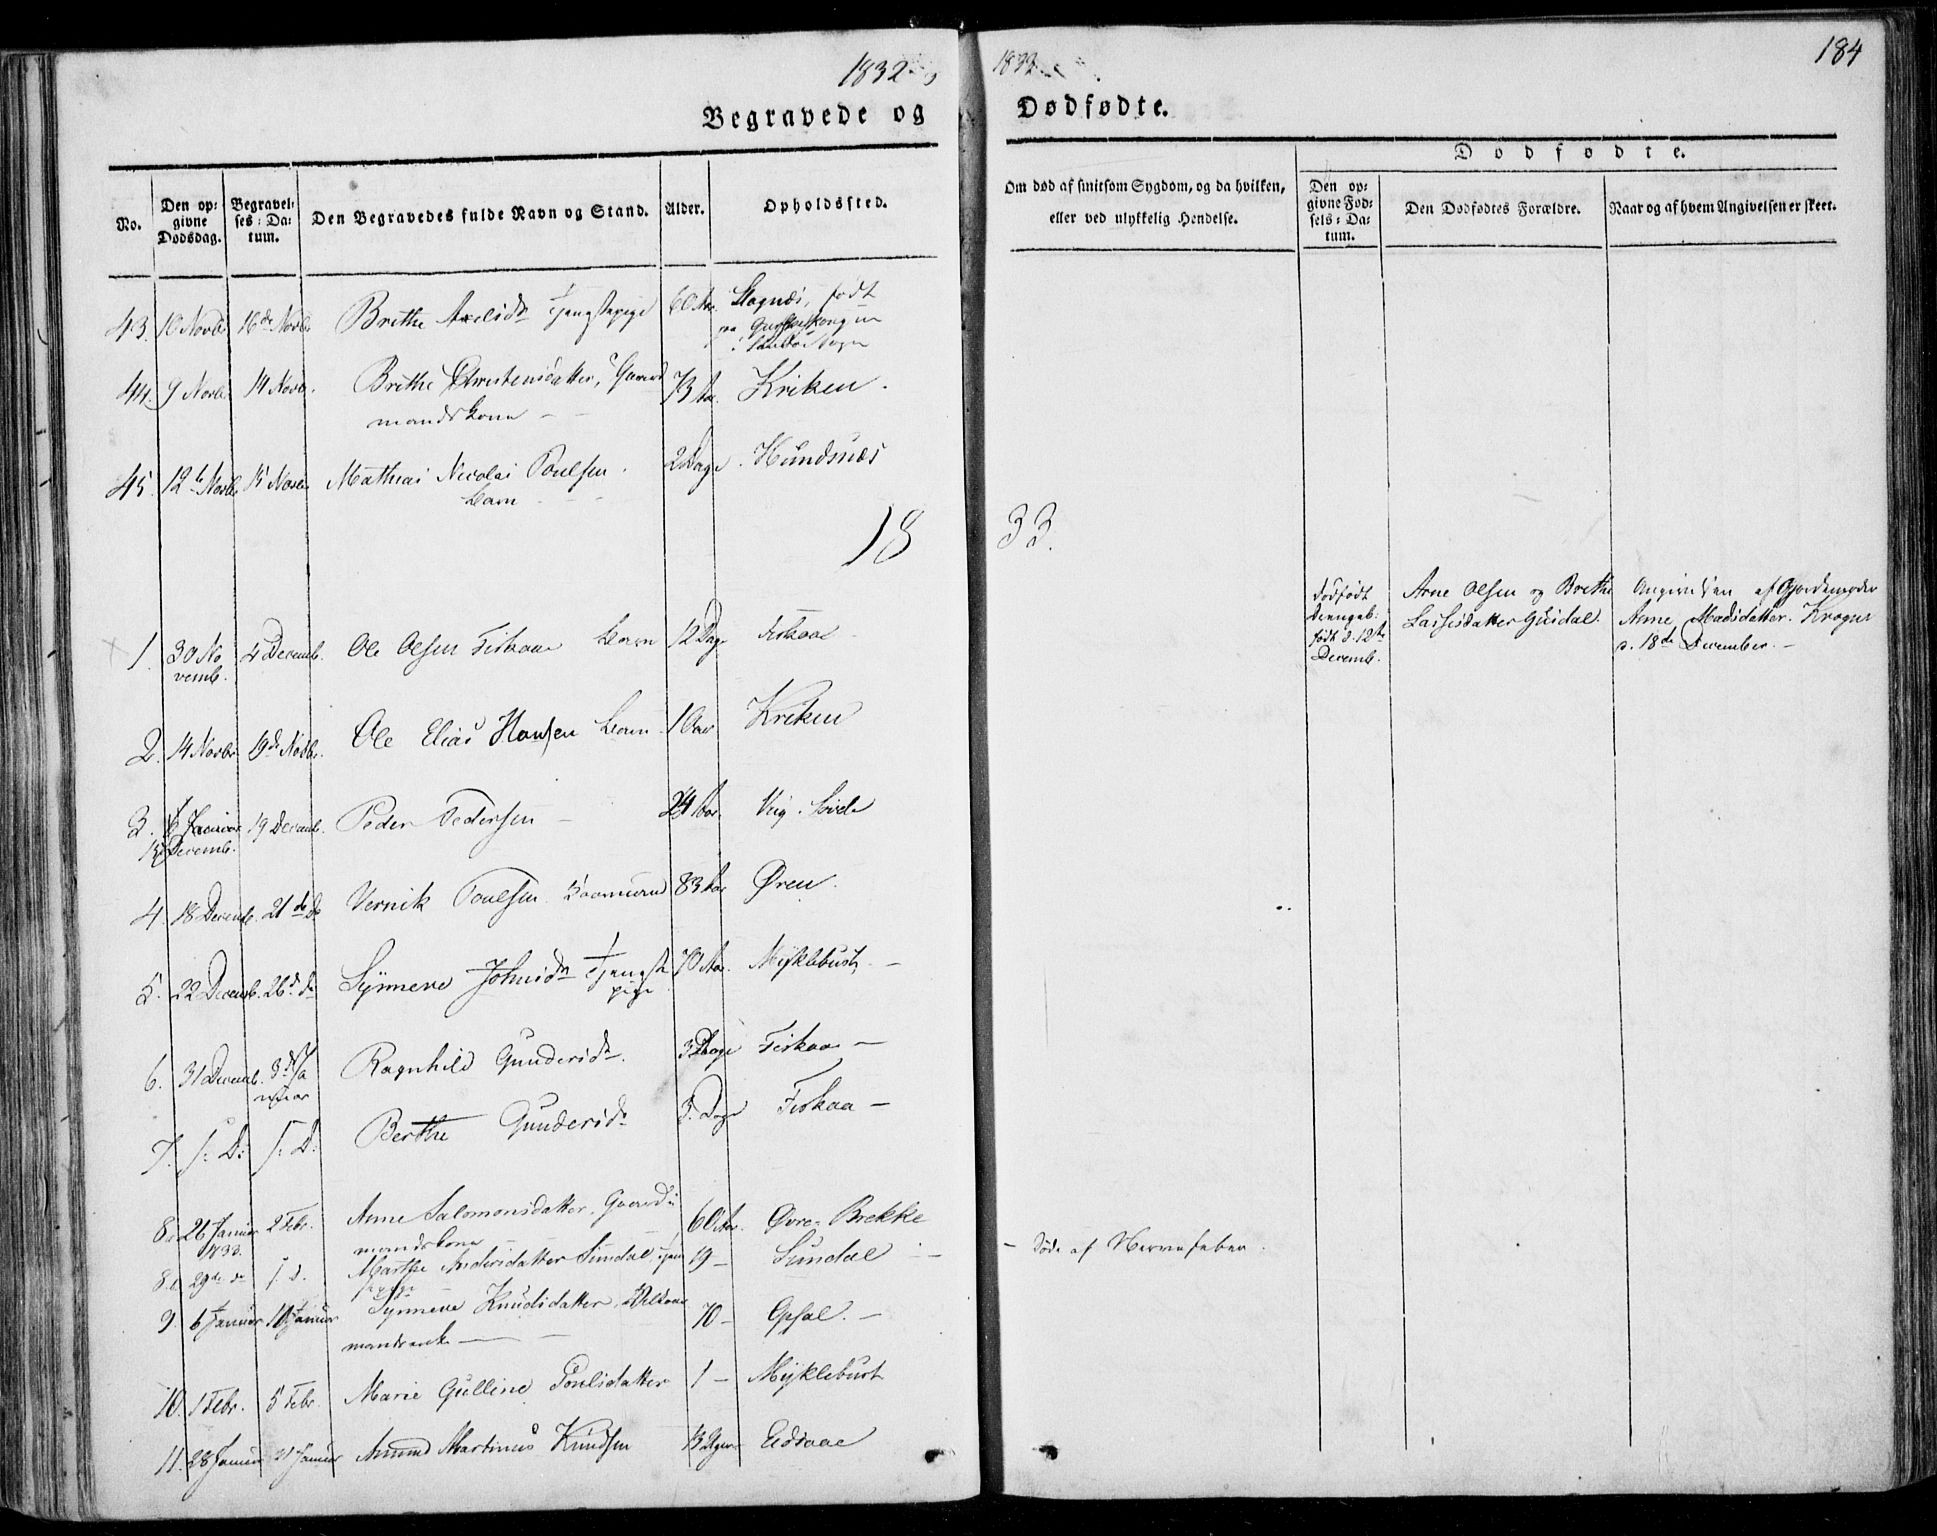 1832
1832
184
Begravede og
Dødfødte.
No.
Den op-
givne
Dødsdag.
Begravel-
ses-Da-
tum.
Den Begravedes fulde Navn og Stand.
Alder.
Opholdssted.
Om død af smitsom Sygdom, og da hvilken,
eller ved ulykkelig Hendelse.
Dødfødte.
Den op-
givne Fød-
sels-Da-
tum.
Den Dødfødtes Forældre.
Naar og af hvem Angivelsen er skeet.
43. 10 Novb 16de Novb Brithe Axelsdr 60 Aar. født
44. 9 Novb 14 Novb. Brithe Christensdatter, Gaard 73 Aar. Kriken.
mandskone
45. 12te Novb 15 Novb Mathias Nicolai Poulsen. 2 Dage. Hundsnæs
Barn
1833.
1. 30 No 4 Decemb. Ole Olsen Fiskaae Barn 12 Dage Fiskaae
vemb.
dødfødt
Drengeb.
født d. 12te
Decemb.
Arne Olsen og Brithe
Lassesdatter Guidal.
Angivelsen af Gjordemoder
Anne Madsdatter Kragnes
d. 18de December.
2. 14 Novbr 19de Novbr. Ole Elias Hansen Barn 1 Aar Kriken
3. 19 Decemb. Peder Pedersen 24 Aar.
Decemb.
4. 18 Decemb. 21de do Vernik Poulsen 83 Aar Øren.
5. 22 Decemb. 26de do Synneve Johnsdr Tjenste 70 Aar. Myklebust
pige
6. 31 Decemb. 3de Ja Ragnhild Gundersdr. 3 Dage Fiskaae
nuar
7. s: D: s: D: Berthe Gundersdr 3. Dage Fiskaa
8. 26 Januar 2 Febr. Anne Salomonsdatter, Gaard 60 Aar. Øvre Brekke
1833. mandskone
8. 29de do s. d. Marthe Andersdatter Sundal 19 Sundal
døde af Nervefeber.
9. 6 Januar 10 Januar Synneve Knudsdatter, 70 Opsal.
mandsenke
10. 1 Febr. 5 Febr. Marie Gulline Poulsdatter 1 Myklebust
11. 28 Januar 31 Januar Amund Martinus Knudsen 13 Uger Eidsaae